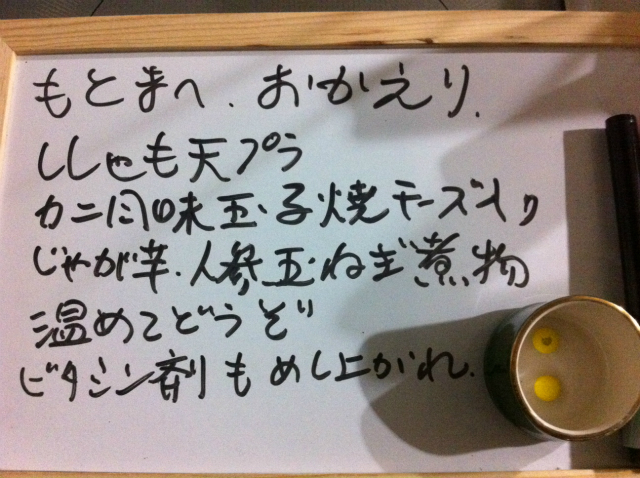 もとまへ.おかえり.
ししゃも天プラ
カニ風味玉子焼チーズ入り
じゃが芋.人参玉ねぎ煮物
温めてどうぞ!
ビタミン剤もめし上がれ.